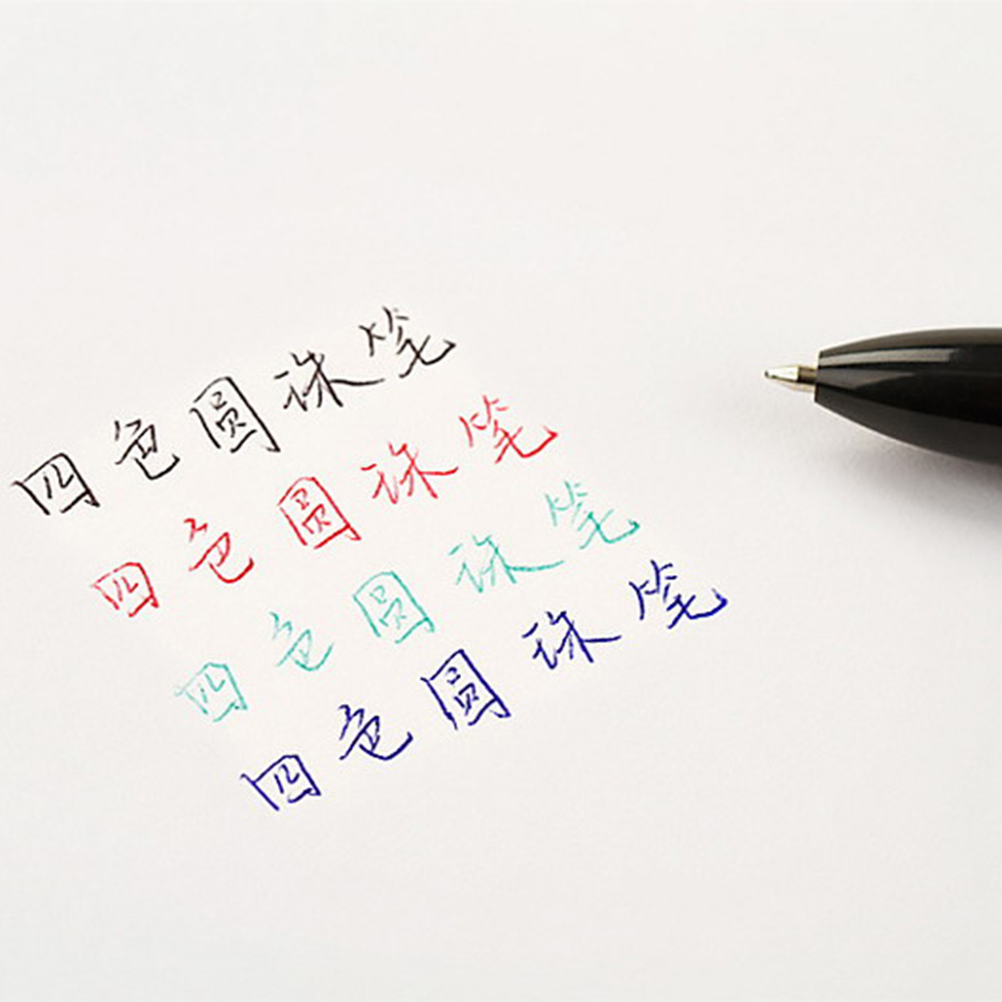 四色圆珠笔
四色圆珠笔
四色圆珠笔
四色圆珠笔